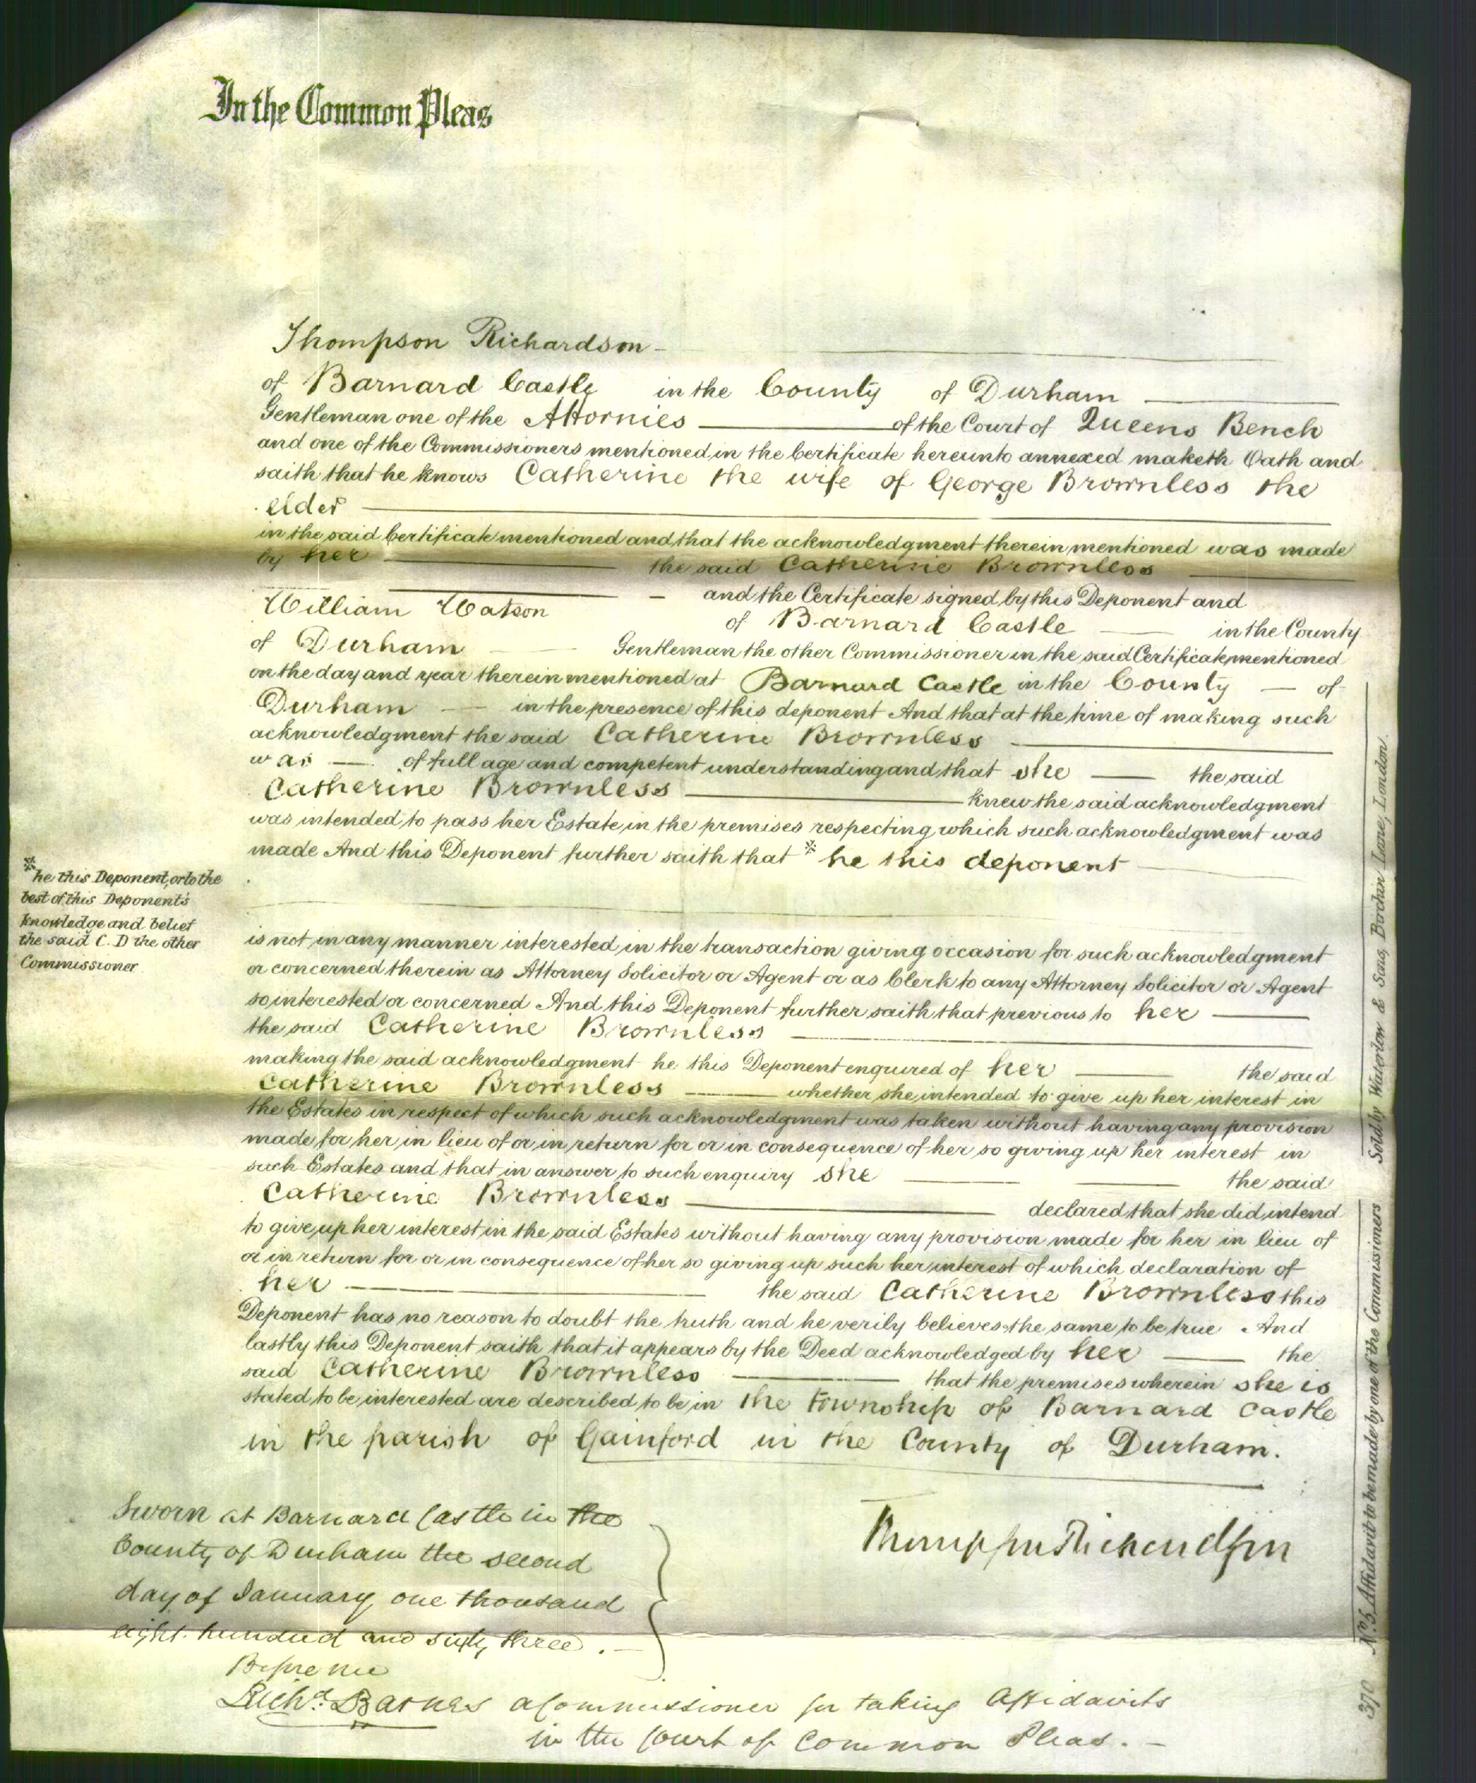 In the Common Pleas
Thompson Richardson
of Barnard Castle in the County of Durham
Gentleman one of the Attornies of the Court of Queens Bench
and one of the Commissioners mentioned in the Certificate hereunto annexed maketh Oath and
saith that he knows Catherine the wife of George Brownless the
elder
in the said Certificate mentioned and that the acknowledgment therein mentioned was made
by her the said Catherine Brownless
and the Certificate signed by this Deponent and
William Watson of Barnard Castle in the County
of Durham Gentleman the other Commissioner in the said Certificate mentioned
on the day and year therein mentioned at Barnard Castle in the County of
Durham in the presence of this deponent And that at the time of making such
acknowledgment the said Catherine Brownless
was of full age and competent understanding and that she the said
Catherine Brownless knew the said acknowledgment
was intended to pass her Estate in the premises respecting which such acknowledgment was
made And this Deponent further saith that * he this deponent
* he this Deponent, or to the
best of this Deponent's
knowledge and belief
the said C. D the other
Commissioner
is not in any manner interested in the transaction giving occasion for such acknowledgment
or concerned therein as Attorney Solicitor or Agent or as Clerk to any Attorney Solicitor or Agent
so interested or concerned And this Deponent further saith that previous to her
the said Catherine Brownless
making the said acknowledgment he this Deponent enquired of her the said
Catherine Brownless whether she intended to give up her interest in
the Estates in respect of which such acknowledgment was taken without having any provision
made for her in lieu of or in return for or in consequence of her so giving up her interest in
such Estates and that in answer to such enquiry she the said
Catherine Brownless declared that she did intend
to give up her interest in the said Estates without having any provision made for her in lieu of
or in return for or in consequence of her so giving up such her interest of which declaration of
her the said Catherine Brownless this
Deponent has no reason to doubt the truth and he verily believes the same to be true And
lastly this Deponent saith that it appears by the Deed acknowledged by her the
said Catherine Brownless that the premises wherein she is
stated to be interested are described to be in the township of Barnard Castle
in the parish of Gainford in the County of Durham.
Sworn at Barnard Castle in the
County of Durham the second
day of January one thousand
eight hundred and sixty three.
Before me
Richd. Barnes a Commissioner for taking Affidavits
in the Court of Common Pleas.
Thompson Richardson
370 No. 5, Affidavit to be made by one of the Commissioners
Sold by Waterlow & Sons, Birchin Lane, London.